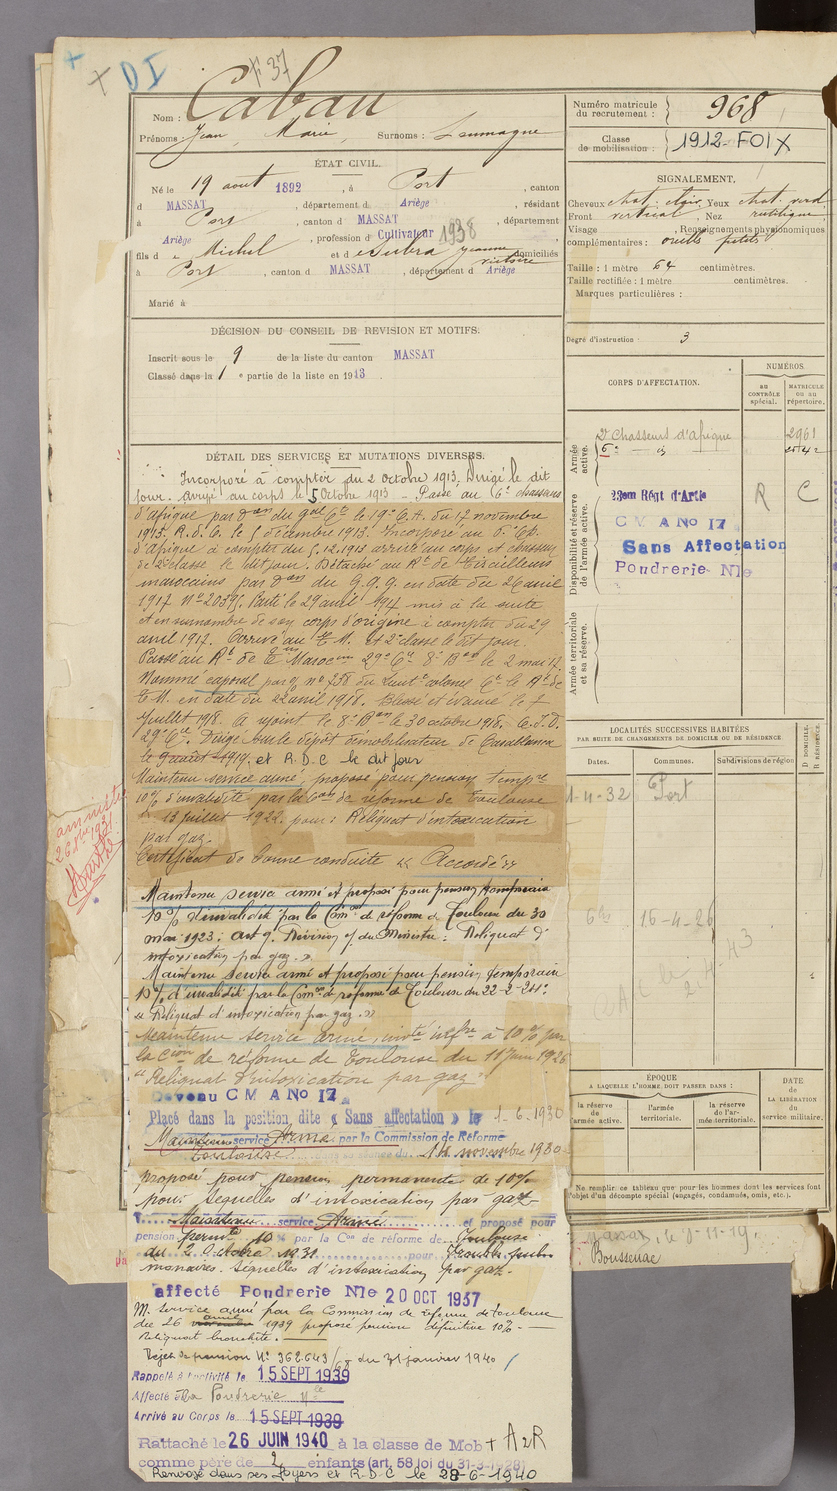 + + D I F 37
Nom : Cabau
Prénoms : Jean Marie Surnoms : Loumagne
ÉTAT CIVIL.
Né le 19 août 1892, à Port, canton
d MASSAT, département d Ariège, résidant
à Port, canton d MASSAT, département
Ariège, profession d Cultivateur 1938
fils d e Michel et d e Subra Jeanne Victoire domiciliés
à Port, canton d MASSAT, département d Ariège
Marié à
DÉCISION DU CONSEIL DE REVISION ET MOTIFS.
Inscrit sous le 9 de la liste du canton MASSAT
Classé dans la 1 e partie de la liste en 1913
DÉTAIL DES SERVICES ET MUTATIONS DIVERSES.
Incorporé à compter du 2 octobre 1913. Dirigé le dit
jour. arrivé au corps le 5 Octobre 1913 - Passé au 6e chasseurs
d'afrique par Don du gal Ct le 19e C.A. du 17 novembre
1913. R.D.C. le 5 décembre 1913. Incorporé au 6e Ch.
d'Afrique à compter du 5.12.1913 arrivé au corps et chasseur
de 2e classe le dit jour. Détaché au Rt de Tirailleurs
marocains par Don du G.Q.G. en date du 26 avril
1917 No 20395. Parti le 29 avril 1917 mis à la suite
et en surnombre de son corps d'origine à compter du 29
avril 1917. Arrivé au T.M. et 2e classe le dit jour.
Passé au Rt de T. Marocains 29e Cie 8e Bon le 2 mai 17.
Nommé caporal par o no 738 du Lieutt colonel Ct le Rt de
T.M. en date du 22 avril 1918. Blessé et évacué le 7
Juillet 1918. A rejoint le 8e Bon le 30 octobre 1918. C.I.D.
29e Cie. Dirigé sur le dépôt démobilisateur de Casablanca
le 9 août 1919. et R.D.C le dit jour
Maintenu service armé, proposé pour pension tempre
10% d'invalidité par la Con de réforme de Toulouse
13 juillet 1922. pour : Reliquat d'intoxication
par gaz.
Certificat de bonne conduite « Accordé »
Maintenu service armé et proposé pour pension temporaire
10% d'invalidité par la Com. de réforme de Toulouse du 30
mai 1923 : Art 9. Révision of du Ministre : Reliquat d'
intoxication par gaz. »
Maintenu service armé et proposé pour pension temporaire
10% d'invalidité par la Com. de reforme de Toulouse du 22-2-24 :
« Reliquat d'intoxication par gaz. »
Maintenu service armé, invté infre à 10% par
la Cion de réforme de Toulouse du 11 Juin 1926
"Reliquat d'intoxication par gaz"
Devenu C M A No 17
Placé dans la position dite « Sans affectation » le 1-6-1930
Maintenu service Armé par la Commission de Réforme
Toulouse dans sa séance du 14 novembre 1930
proposé pour pension permanente de 10%
pour séquelles d'intoxication par gaz
Maintenu service Armé et proposé pour
pension permte 10 % par la Con de réforme de Toulouse
du 2 Octobre 1931 pour Troubles pulmo
monaires. séquelles d'intoxication par gaz.
affecté Poudrerie Nle 20 OCT 1937
M. service armé par la Commission de réforme de Toulouse
du 26 avril 1939 proposé pension définitive 10% -
Reliquat bronchite.
Rejet de pension No 362.643/ du 31 janvier 1940
Rappelé à l'activité le 15 SEPT 1939
Affecté à la Poudrerie Nle
Arrivé au Corps le 15 SEPT 1939
Rattaché le 26 JUIN 1940 à la classe de Mob + A2R
comme père de 2 enfants (art. 58 loi du 31-3-1928)
Renvoyé dans ses foyers et R.D.C le 28-6-1940
amnistié
Numéro matricule
du recrutement : 968
Classe
de mobilisation : 1912-FOIX
SIGNALEMENT.
Cheveux chat. clair Yeux chat. verd
Front vertical, Nez rectiligne
Visage , Renseignements physionomiques
complémentaires : oreilles petites
Taille : 1 mètre 64 centimètres.
Taille rectifiée : 1 mètre centimètres.
Marques particulières :
Degré d'instruction 3
CORPS D'AFFECTATION.
NUMÉROS.
AU
CONTRÔLE
spécial.
MATRICULE
OU AU
répertoire.
Armée
active.
2e Chasseurs d'afrique 2961
6e id
Disponibilité et réserve
de l'armée active.
23em Régt d'Artie R C
C M A No 17
Sans Affectation
Poudrerie Nle
Armée territoriale
et sa réserve.
LOCALITÉS SUCCESSIVES HABITÉES
PAR SUITE DE CHANGEMENTS DE DOMICILE OU DE RÉSIDENCE.
Dates. Communes. Subdivisions de région
D DOMICILE.
R RÉSIDENCE.
1-4-32 Port
16-4-26
2-4-43
ÉPOQUE
A LAQUELLE L'HOMME DOIT PASSER DANS :
la réserve
de
l'armée active.
l'armée
territoriale.
la réserve
de l'ar-
mée territoriale.
DATE
de
LA LIBÉRATION
du
service militaire.
Ne remplir ce tableau que pour les hommes dont les services font
l'objet d'un décompte spécial (engagés, condamnés, omis, etc.).
Massat, le
Boussenac